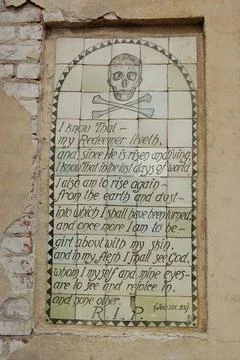 I know That ~
my Redeemer liveth,
and, since He is risen and living,
I know that in the last days of world
I also am to rise again ~
from the earth and dust ~
into which I shall have been turned,
and once more I am to be ~
girt about with my skin,
and in my flesh I shall see God,
whom I myself and mine eyes ~
are to see and rejoice in,
and none other. (Job XIX. 25)
R.I.P